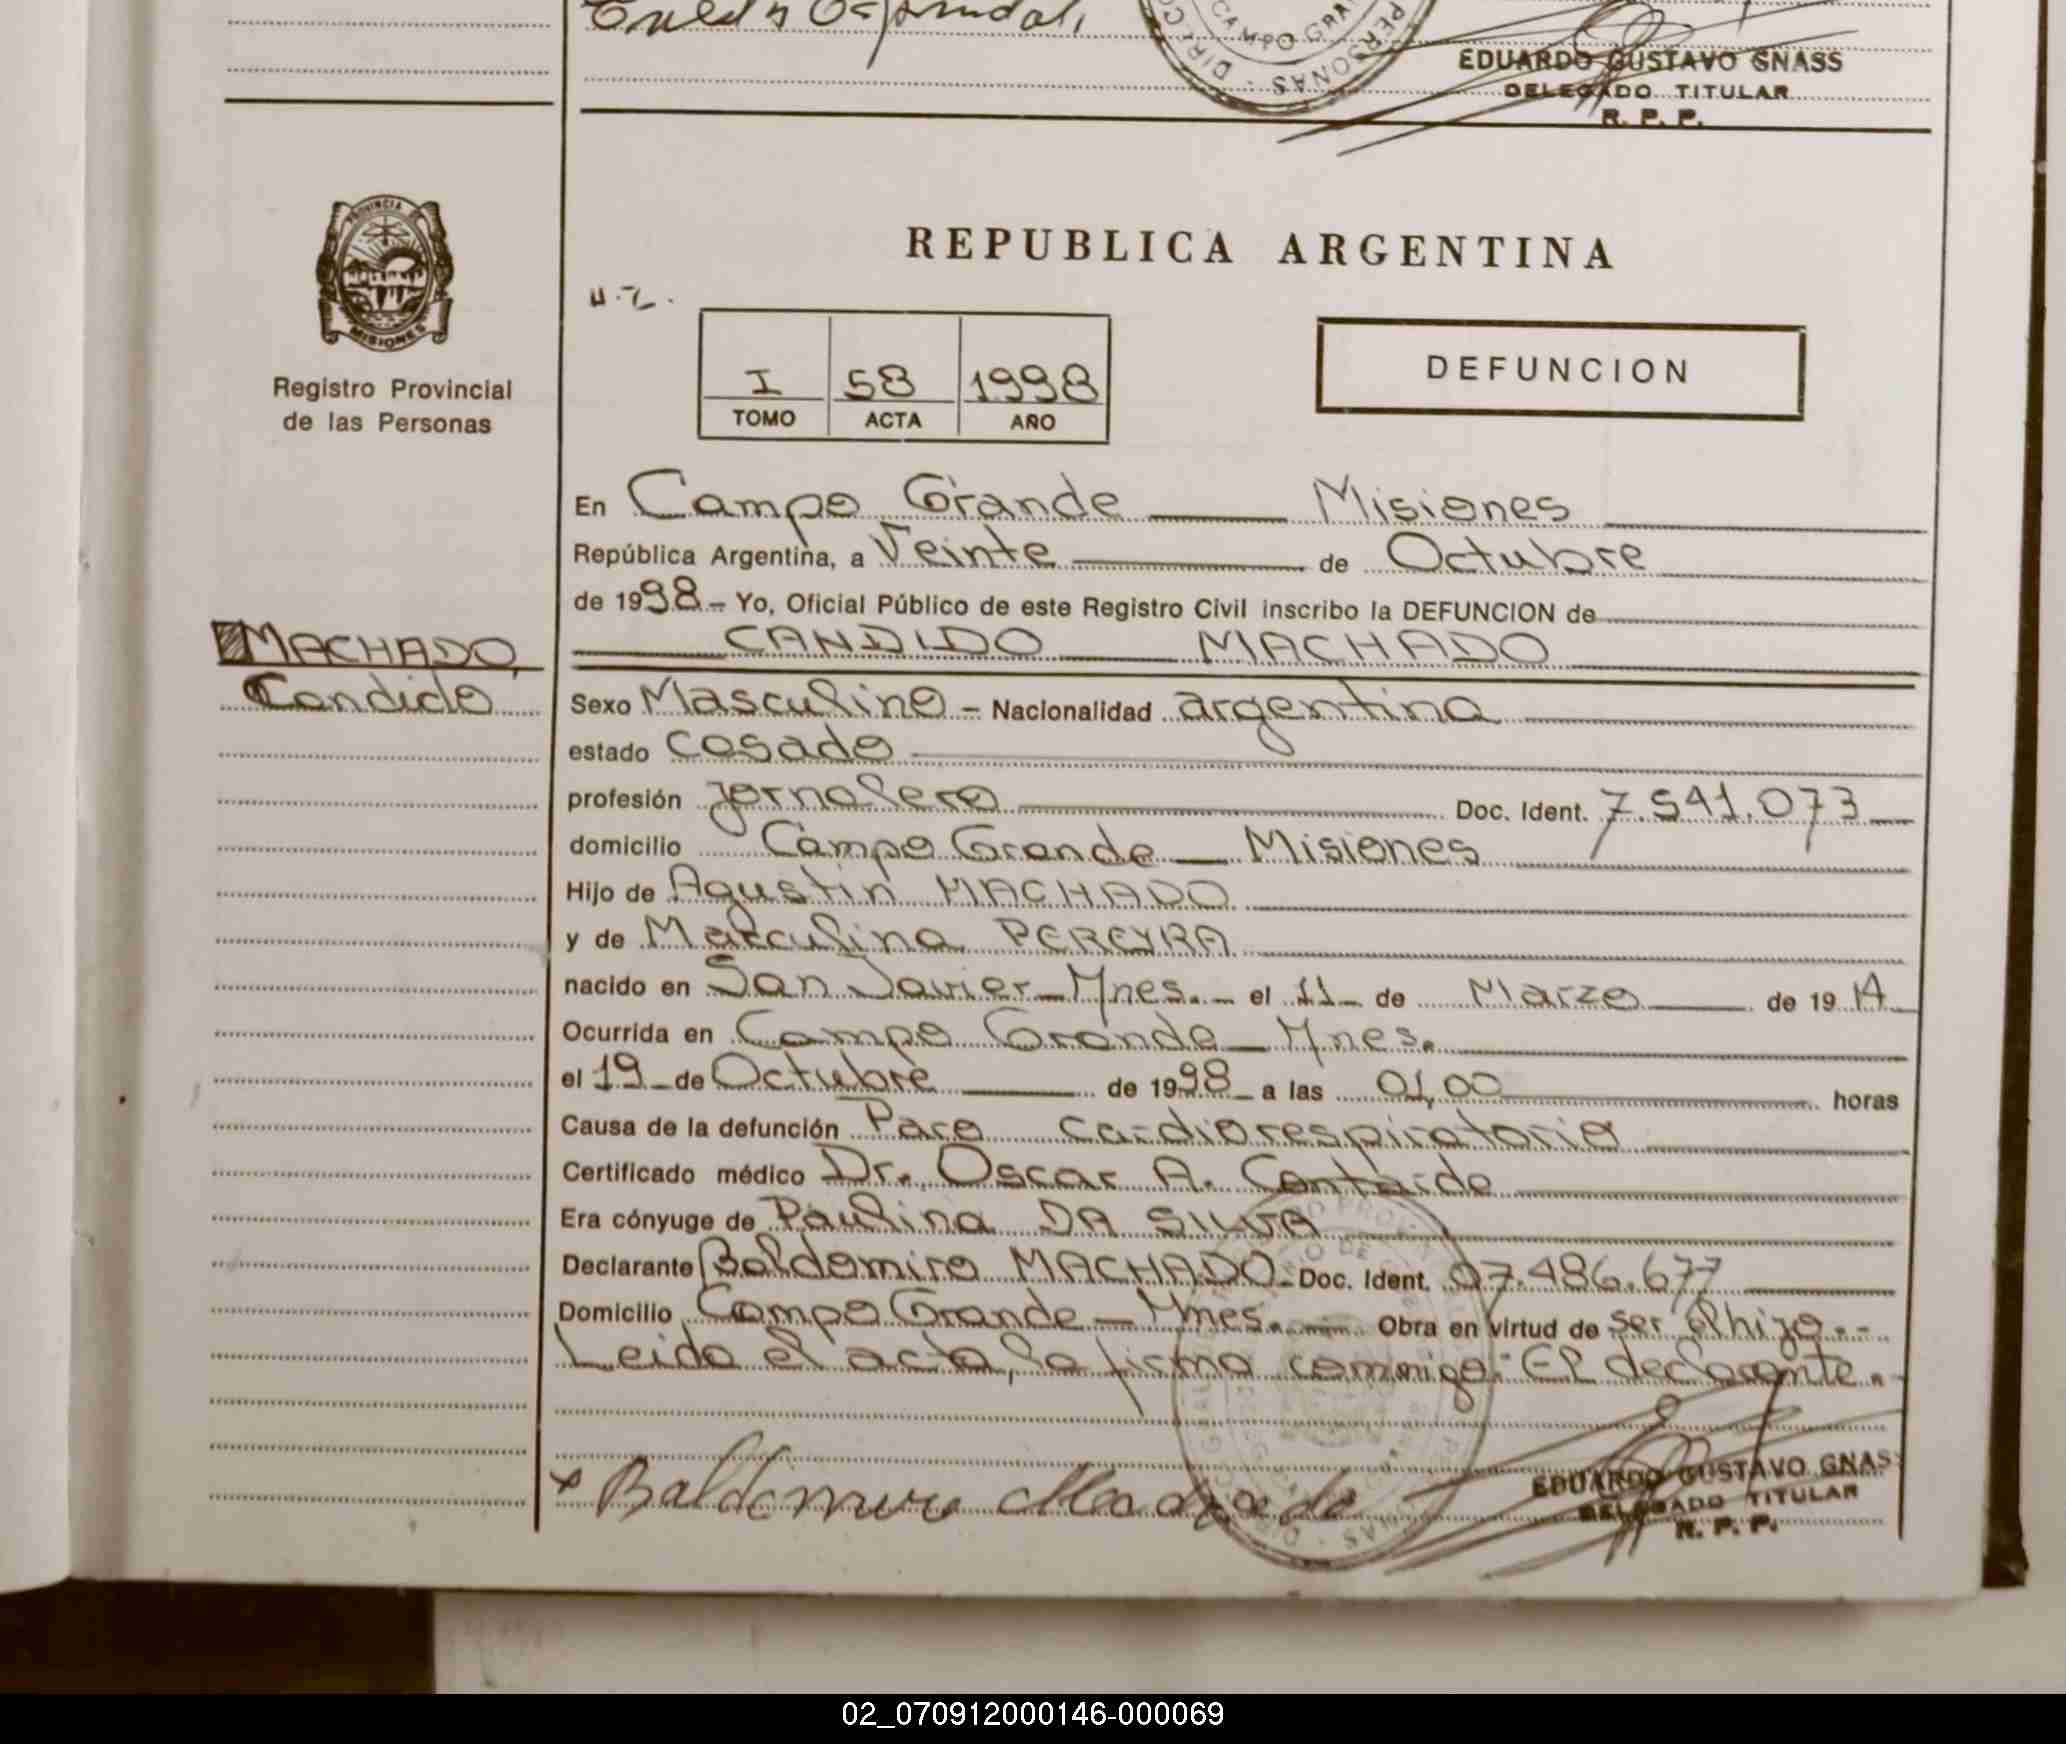 CAMPO GRA
DIREC
PERSONAS
EDUARDO GUSTAVO GNASS
DELEGADO TITULAR
R. P. P.
PROVINCIA DE
MISIONES
Registro Provincial
de las Personas
REPUBLICA ARGENTINA
I 58 1998
TOMO ACTA AÑO
DEFUNCION
En Campo Grande Misiones
República Argentina, a Veinte de Octubre
de 1998.- Yo, Oficial Público de este Registro Civil inscribo la DEFUNCION de
CANDIDO MACHADO
MACHADO,
Candido
Sexo Masculino - Nacionalidad argentina
estado casado
profesión jornalero Doc. Ident. 7.541.073
domicilio Campo Grande - Misiones
Hijo de Agustin MACHADO
y de Marculina PEREYRA
nacido en San Javier - Mnes. - el 11 - de Marzo de 19 14
Ocurrida en Campo Grande - Mnes.
el 19 - de Octubre de 1998 a las 01,00 horas
Causa de la defunción Paro cardiorespiratorio
Certificado médico Dr. Oscar A.
Era cónyuge de Paulina DA SILVA
Declarante Baldomiro MACHADO - Doc. Ident. 07.486.677
Domicilio Campo Grande - Mnes. - Obra en virtud de ser el hijo.--
Leida el acta, la firma conmigo: El declarante.
x Baldomiro Machado
EDUARDO GUSTAVO GNASS
DELEGADO TITULAR
R. P. P.
02_070912000146-000069